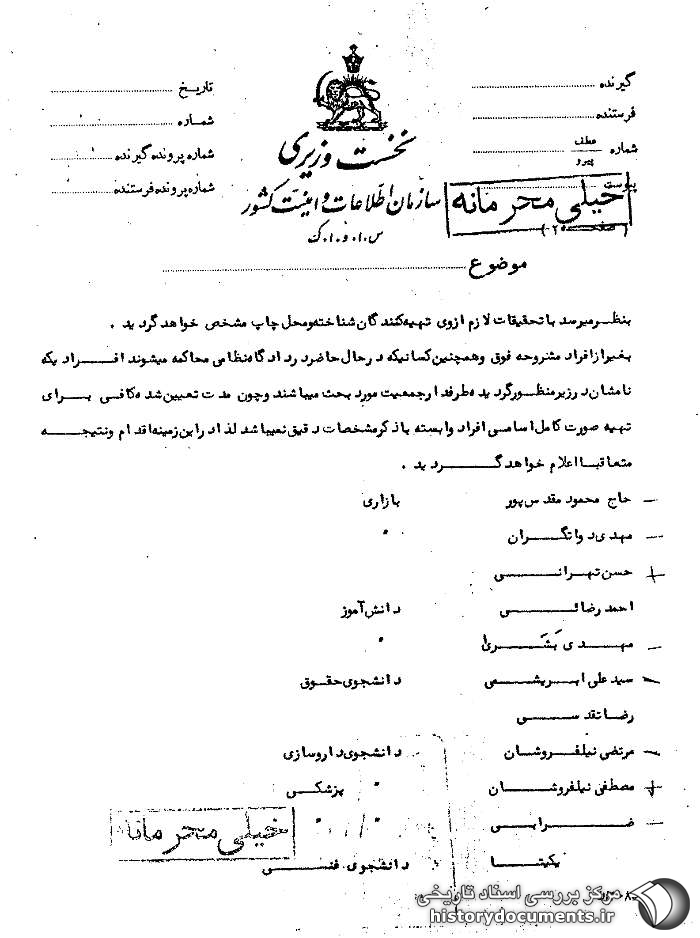 گیرنده
فرستنده
شماره عطف پیرو
پیوست
تاریخ
شماره
شماره پرونده گیرنده
شماره پرونده فرستنده
نخست وزیری
سازمان اطلاعات و امنیت کشور
س.ا.و.ا.ک
خیلی محرمانه
(صفحه ۲)
موضوع
بنظر میرسد با تحقیقات لازم از وی تهیه کنندگان شناخته و محل چاپ مشخص خواهد گردید .
بغیر از افراد مشروحه فوق و همچنین کسانیکه در حال حاضر در دادگاه نظامی محاکمه میشوند افرادیکه
نامشان در زیر منظور گردیده طرفدار جمعیت مورد بحث میباشند و چون مدت تعیین شده کافی برای
تهیه صورت کامل اسامی افراد وابسته با ذکر مشخصات دقیق نمیباشد لذا در این زمینه اقدام و نتیجه
متعاقبا اعلام خواهد گردید .
— حاج محمود مقدس پور بازاری
— مهدی دواتگران "
+ حسن تهرانی
احمد رضائی دانش آموز
— مهدی بشری "
— سید علی ابریشمی دانشجوی حقوق
رضا تقدسی
— مرتضی نیلفروشان دانشجوی داروسازی
+ مصطفی نیلفروشان " پزشکی
— ضرابی " "
یکیتا دانشجوی فنی
خیلی محرمانه
مرکز بررسی اسناد تاریخی
historydocuments.ir